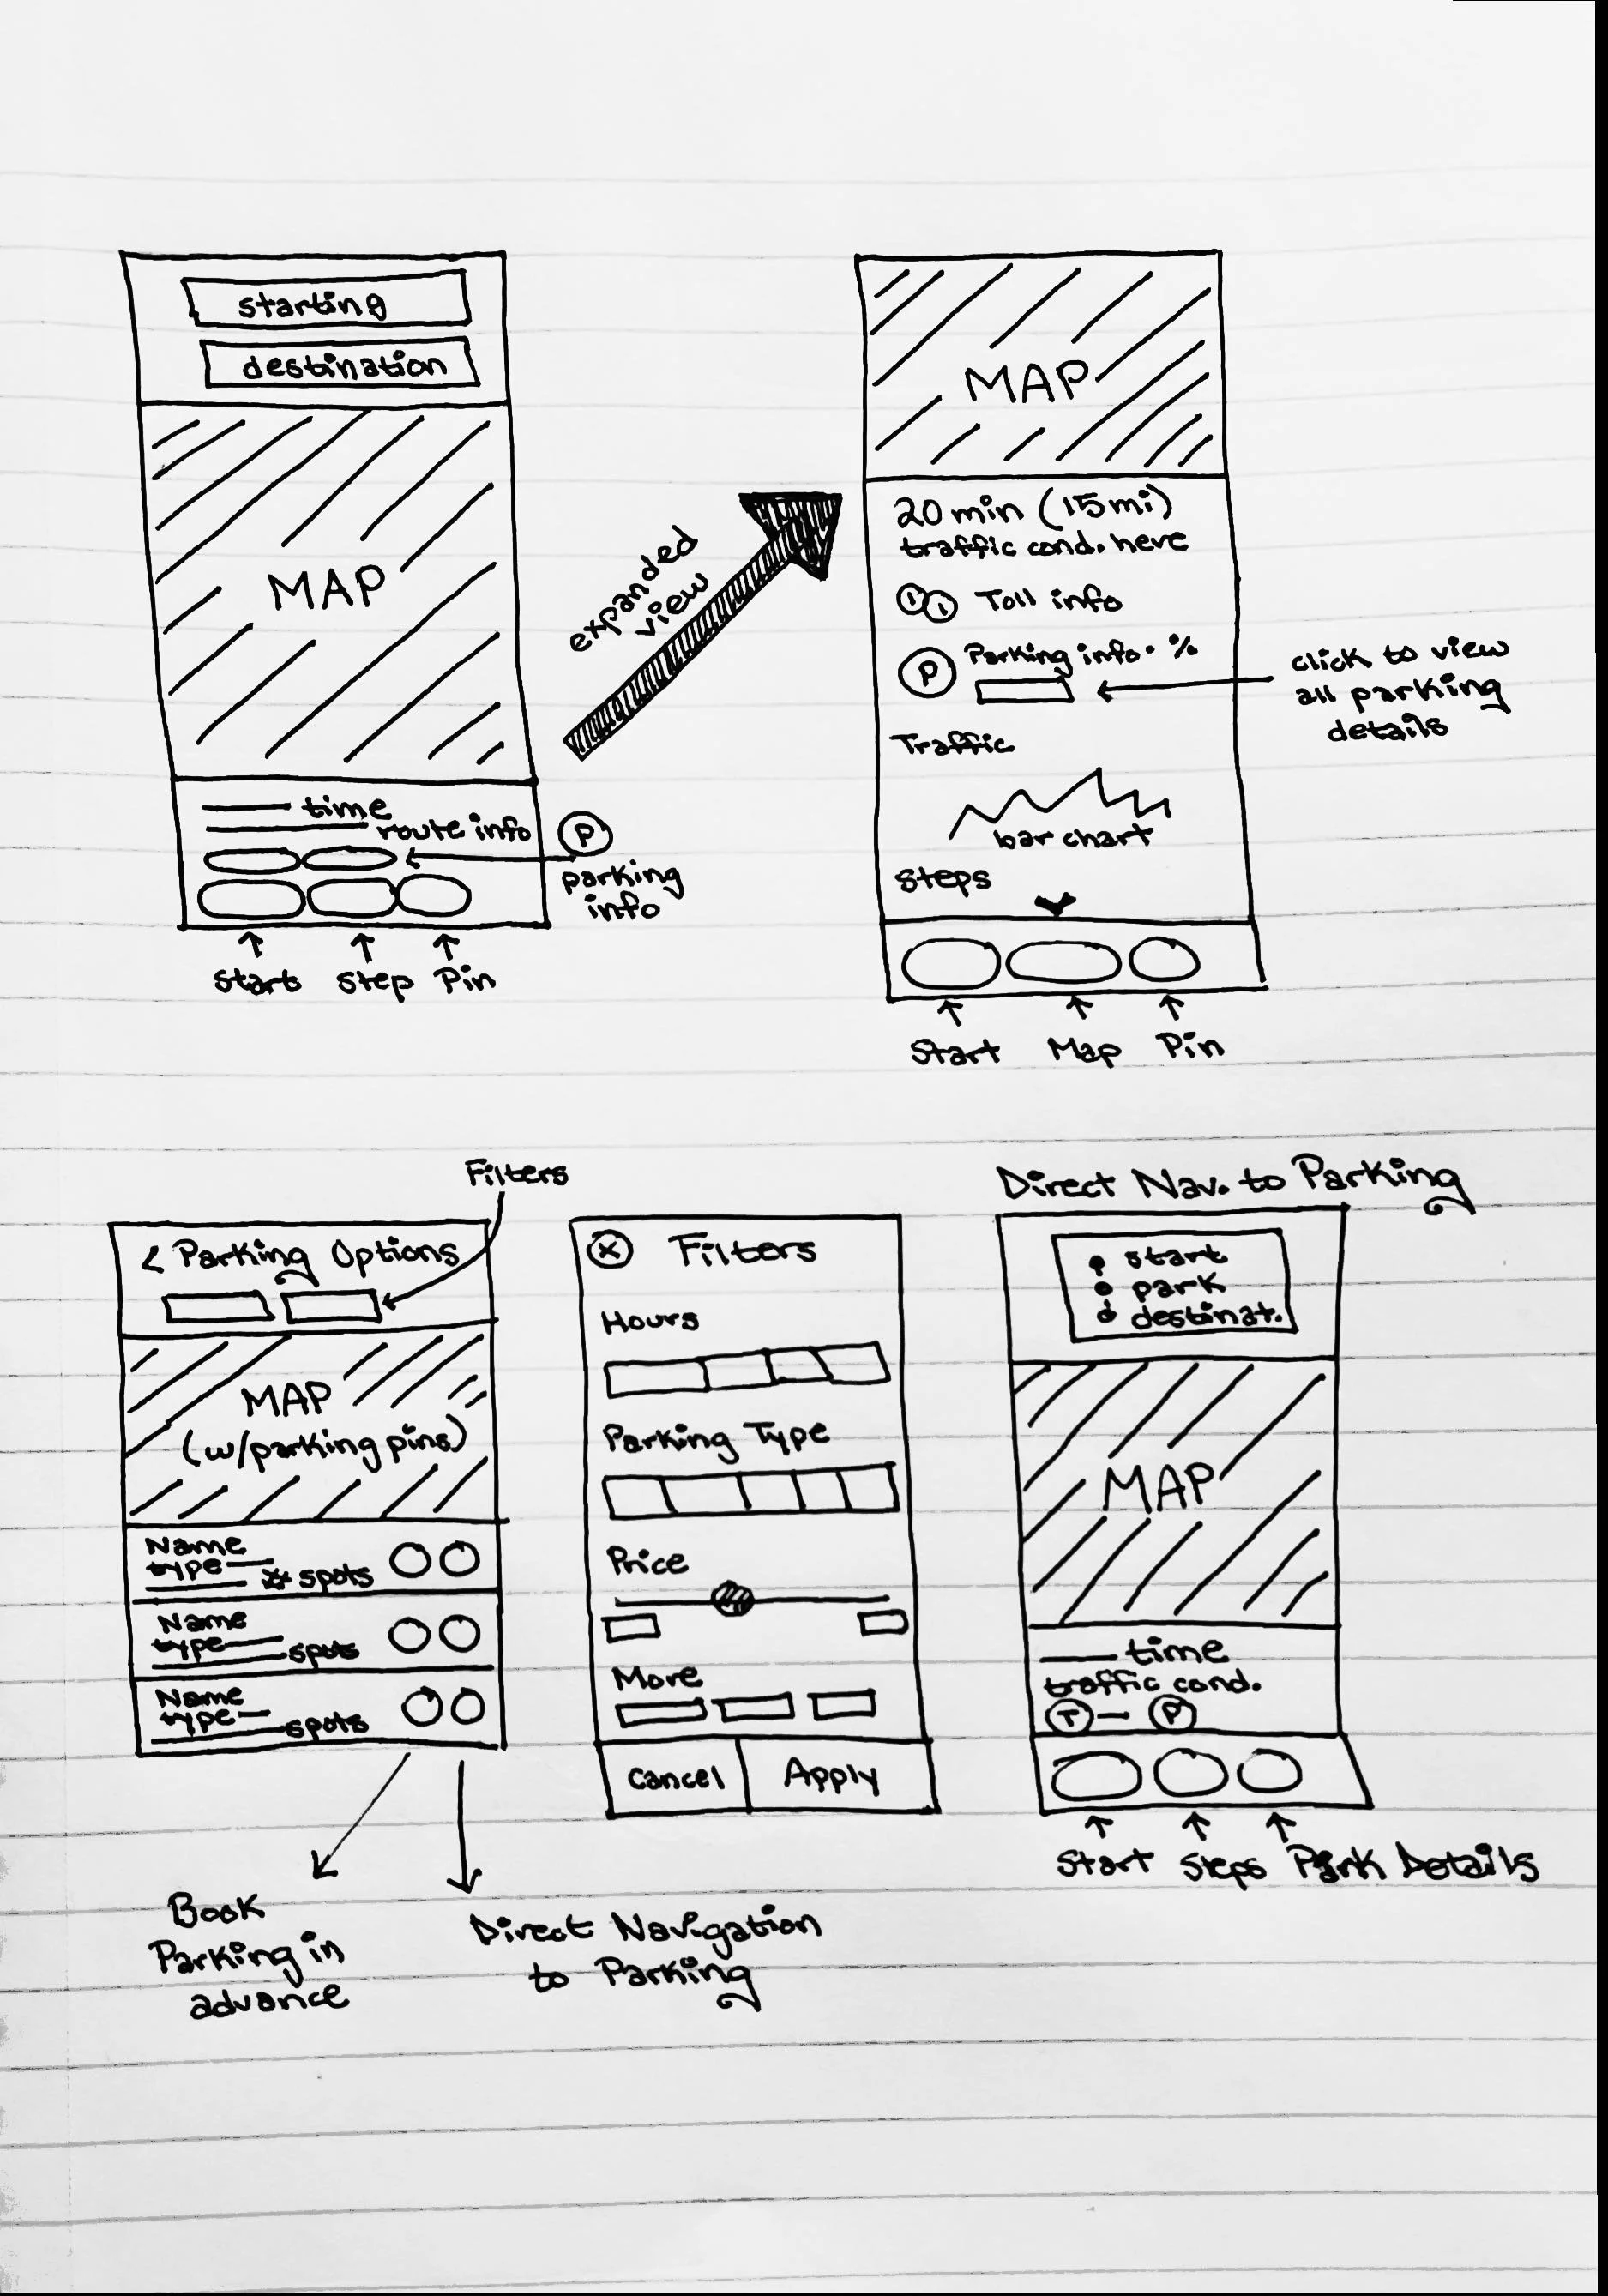 starting
destination
MAP
time
route info
P
parking
info
Start
Step
Pin
expanded
view
MAP
20 min (15 mi)
traffic cond. here
Toll info
P
Parking info • %
click to view
all parking
details
Traffic
bar chart
Steps
Start
Map
Pin
Filters
< Parking Options
MAP
(w/parking pins)
Name
type
# spots
Name
type
spots
Name
type
spots
Book
Parking in
advance
Direct Navigation
to Parking
X Filters
Hours
Parking Type
Price
More
Cancel
Apply
Direct Nav. to Parking
start
park
destinat.
MAP
time
traffic cond.
T — P
Start
Steps
Park Details